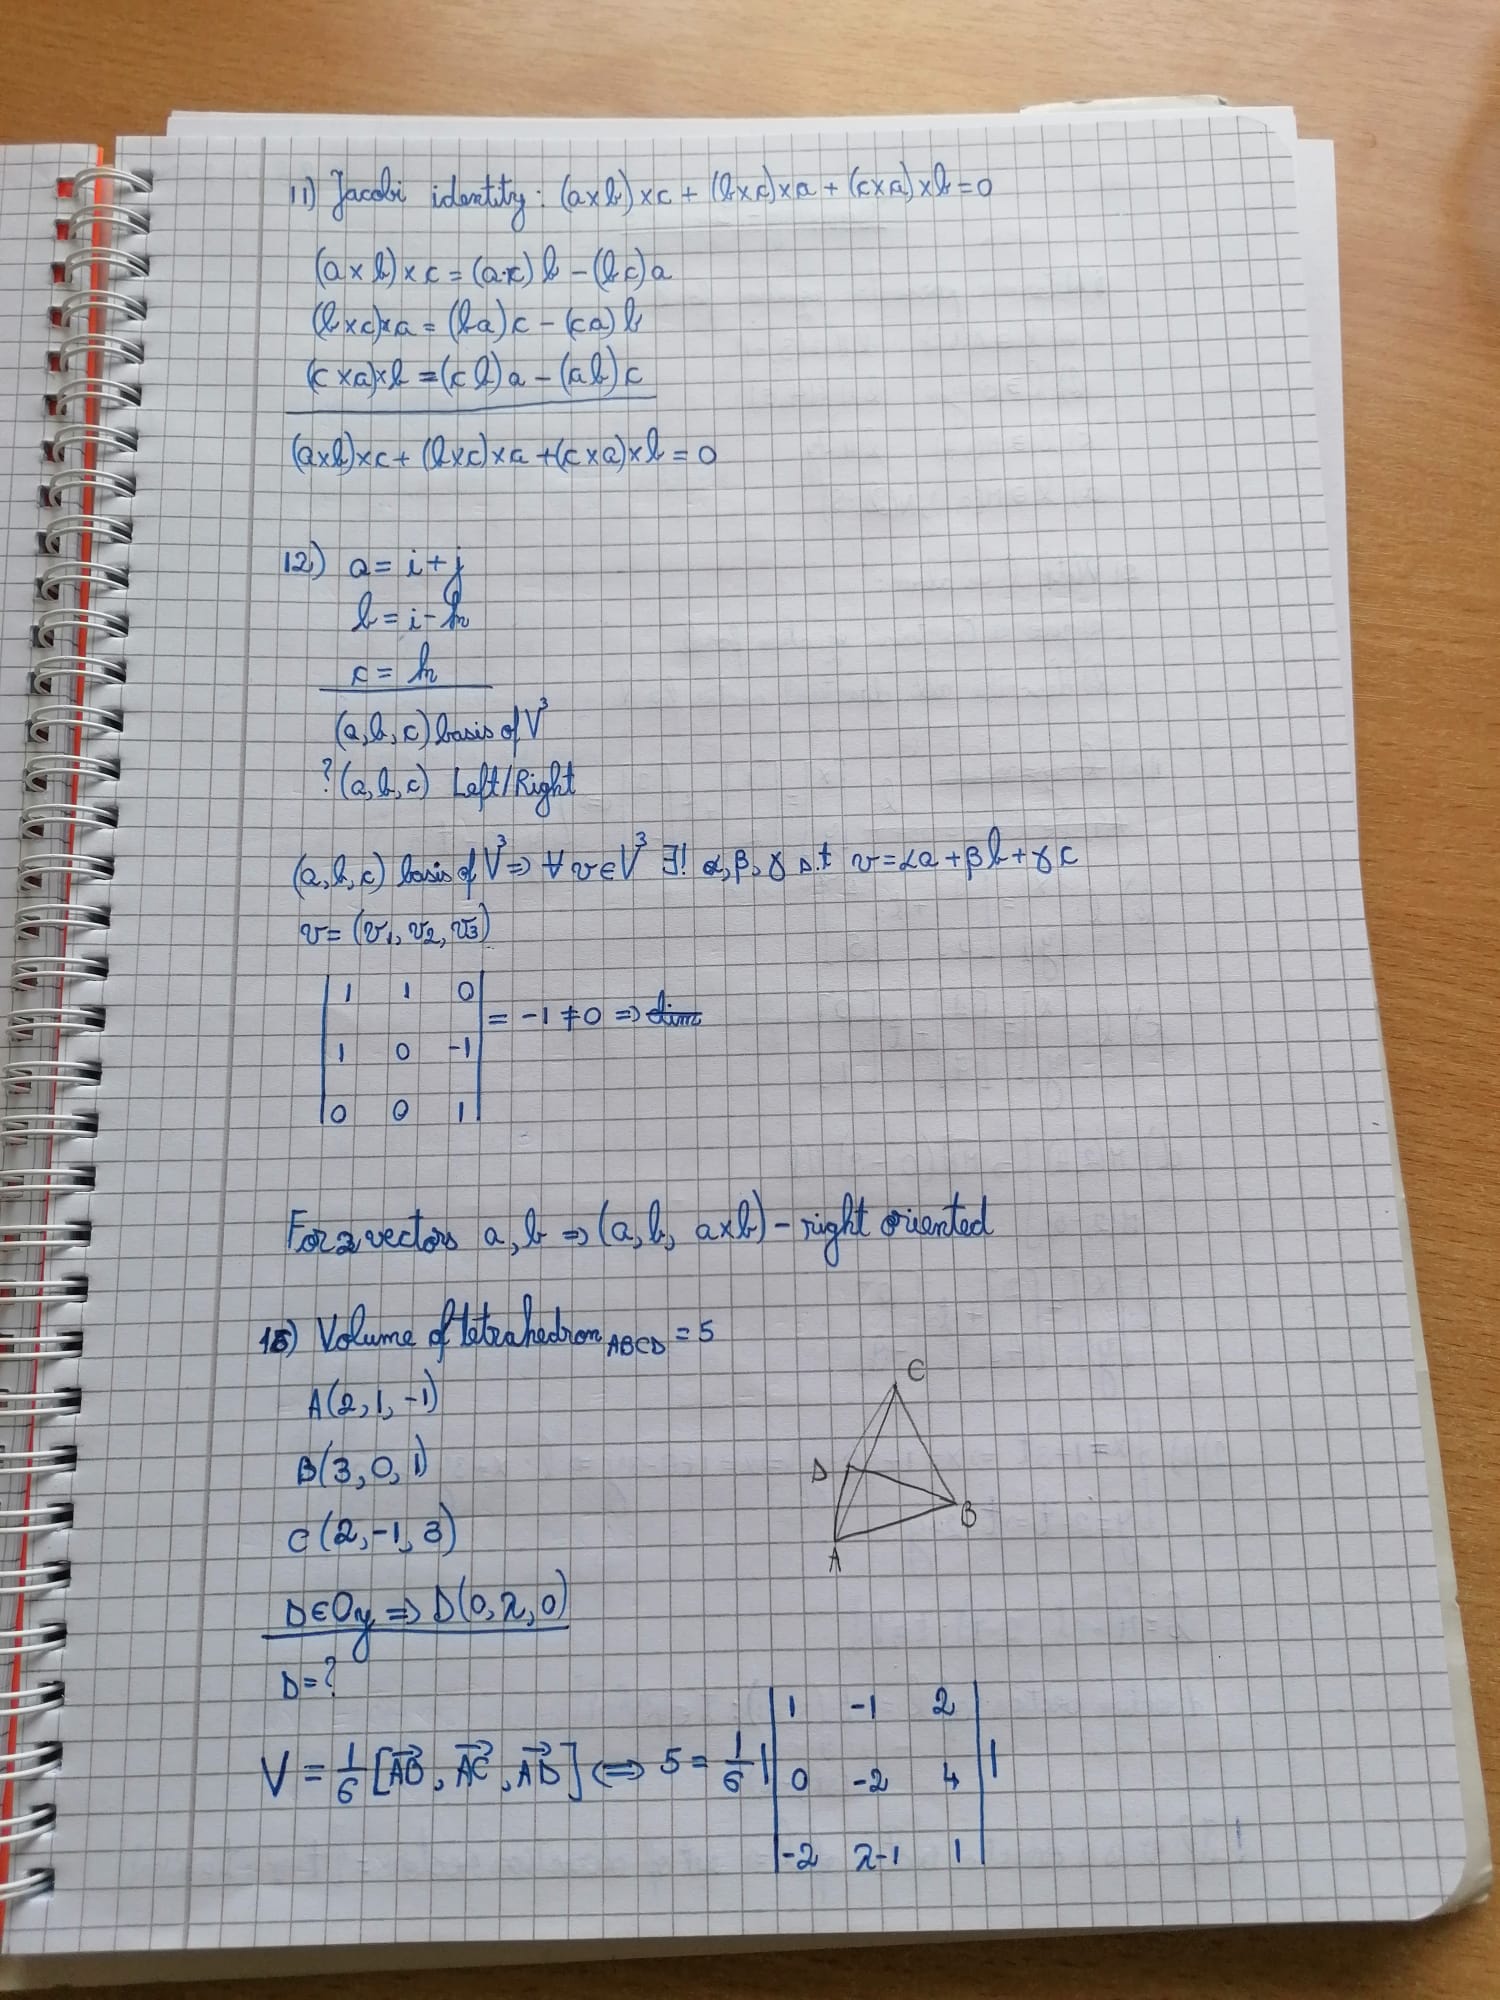 11) Jacobi identity: (a×b)×c + (b×c)×a + (c×a)×b=0
(a×b)×c = (a·c)b - (bc)a
(b×c)×a = (ba)c - (ca)b
(c×a)×b = (cb)a - (ab)c
(a×b)×c + (b×c)×a + (c×a)×b = 0
12) a = i+j
b = i-k
c = k
(a,b,c) basis of V³
? (a,b,c) Left/Right
(a,b,c) basis of V³ => ∀ v∈V³ ∃! α,β,γ s.t v=αa+βb+γc
v= (v1, v2, v3)
| 1 1 0 |
| 1 0 -1 | = -1 ≠ 0 => dim
| 0 0 1 |
For 2 vectors a,b => (a,b, a×b) - right oriented
15) Volume of tetrahedron ABCD = 5
A(2,1,-1)
B(3,0,1)
C(2,-1,3)
D∈Oy => D(0,λ,0)
D=?
C
D
B
A
V = 1/6 [AB→, AC→, AD→] <=> 5 = 1/6 | | 1 -1 2 |
| 0 -2 4 | |
| -2 λ-1 1 |